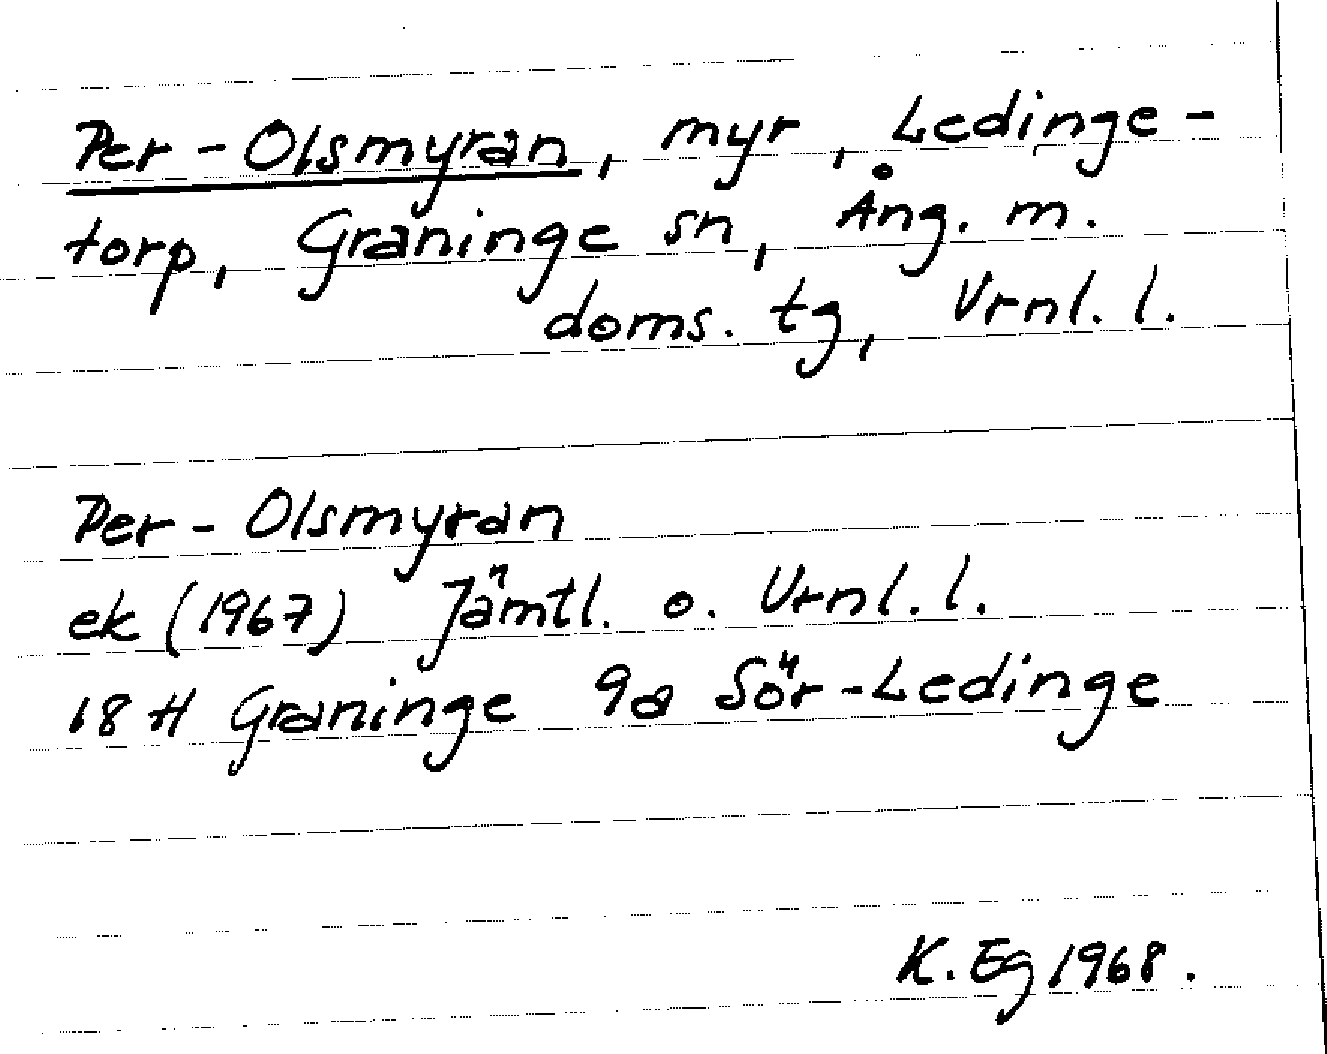 Per-Olsmyran, myr, Ledinge-
torp, Graninge sn, Ång. m.
doms. tg, Vrnl. l.
Per-Olsmyran
ek (1967) Jämtl. o. Vrnl. l.
18 H Graninge 9a Sör-Ledinge
K. Eg 1968.